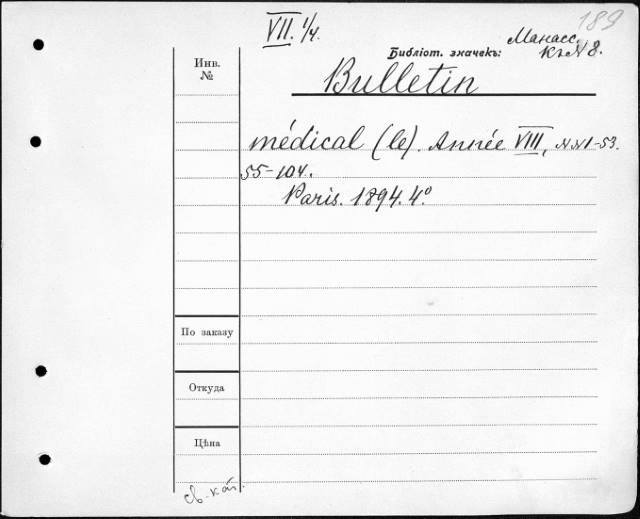 189
VII. 1/4.
Манасс.
Библіот. значекъ: Къ N 8.
Инв.
№
Bulletin
médical (le). Année VIII, NN 1-53.
55-104.
Paris. 1894. 4°
По заказу
Откуда
Цѣна
св. кат.